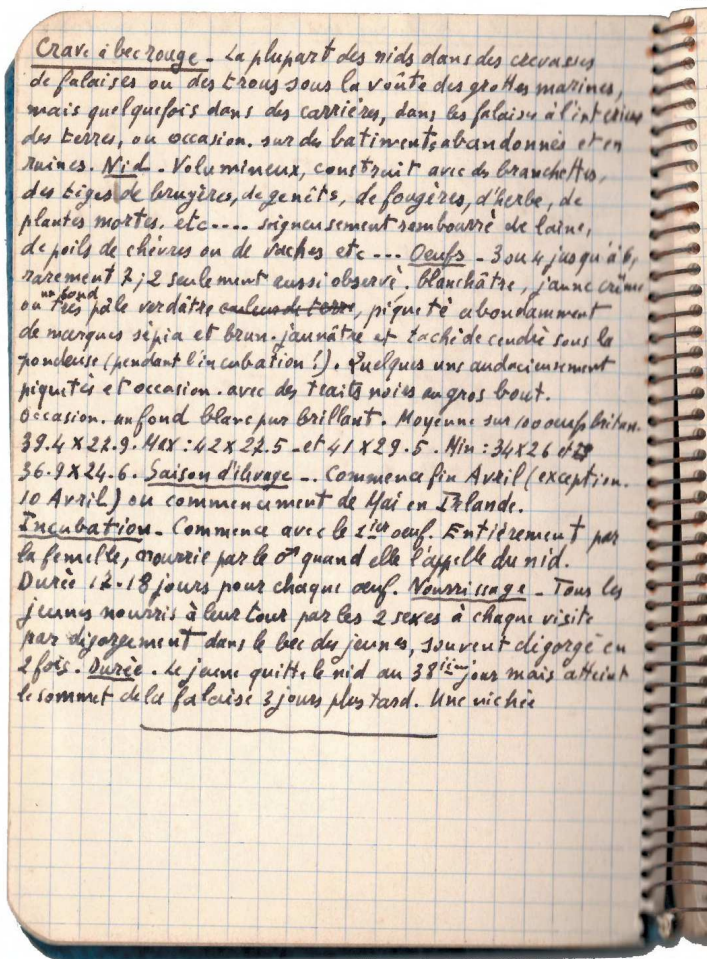 Crave à bec rouge - La plupart des nids dans des crevasses
de falaises ou des trous sous la voûte des grottes marines,
mais quelquefois dans des carrières, dans les falaises à l'intérieur
des terres, ou occasion. sur des batiments abandonnés et en
ruines. Nid - Volumineux, construit avec des branchettes,
des tiges de bruyères, de genêts, de fougères, d'herbe, de
plantes mortes. etc.... soigneusement rembourré de laine,
de poils de chèvres ou de vaches etc... Oeufs - 3 ou 4 jusqu'à 6,
rarement 7; 2 seulement aussi observé. blanchâtre, jaune crème
un fond
ou très pâle verdâtre couleur de terre, piqueté abondamment
de marques sépia et brun-jaunâtre et taché de cendré sous la
pondeuse (pendant l'incubation!). Quelques uns audacieusement
piquetés et occasion. avec des traits noirs au gros bout.
Occasion. un fond blanc pur brillant. Moyenne sur 100 oeufs britan.
39.4 x 27.9. Max : 42 x 27.5 - et 41 x 29.5. Min : 34 x 26 et
36.9 x 24.6. Saison d'élevage -. Commence fin Avril (exception.
10 Avril) ou commencement de Mai en Irlande.
Incubation - Commence avec le 1ier oeuf. Entièrement par
la femelle, nourrie par le ♂ quand elle l'appelle du nid.
Durée 17-18 jours pour chaque oeuf. Nourrissage - Tous les
jeunes nourris à leur tour par les 2 sexes à chaque visite
par dégorgement dans le bec des jeunes, souvent dégorgé en
2 fois. Durée. Le jeune quitte le nid au 38ième jour mais atteint
le sommet de la falaise 3 jours plus tard. Une nichée